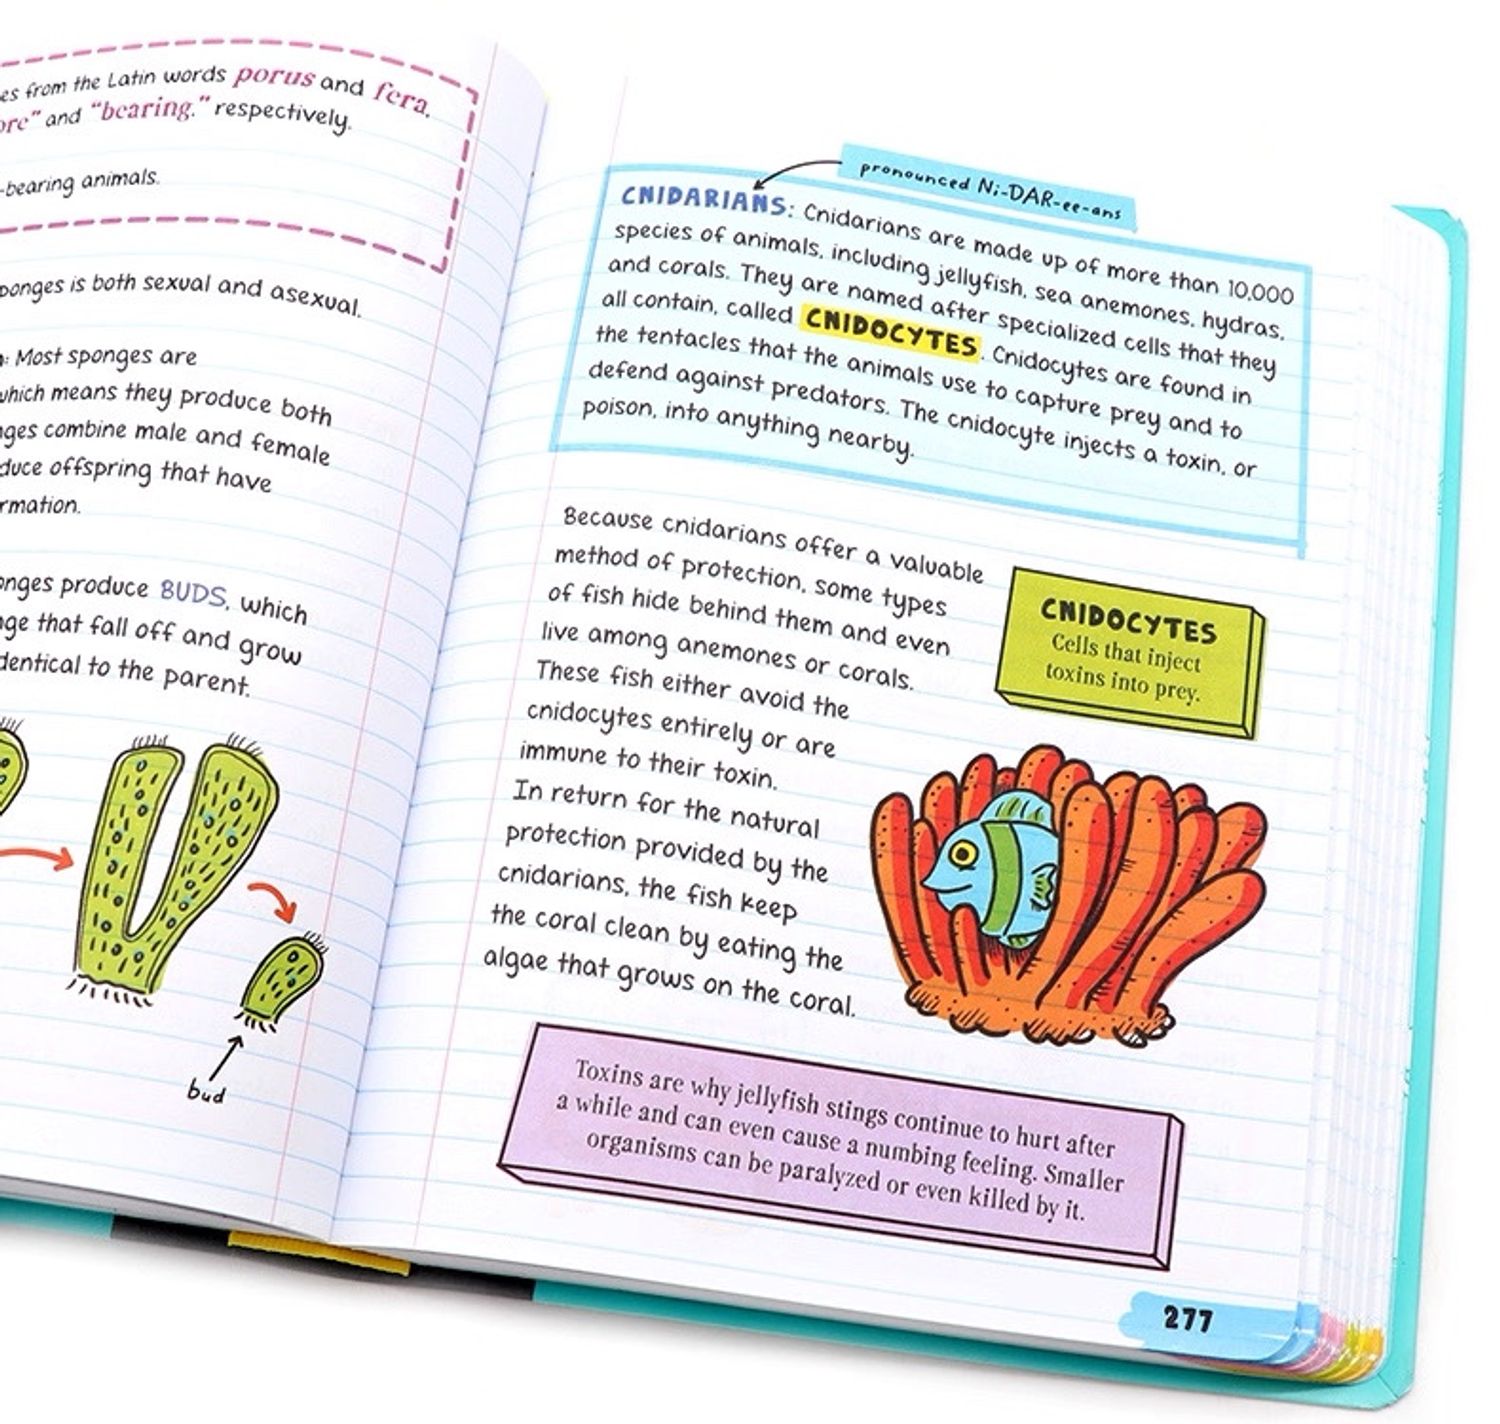 es from the Latin words porus and fera,
ore" and "bearing," respectively.
-bearing animals.
ponges is both sexual and asexual.
: Most sponges are
which means they produce both
nges combine male and female
duce offspring that have
rmation.
onges produce BUDS, which
nge that fall off and grow
dentical to the parent.
bud
pronounced Ni-DAR-ee-ans
CNIDARIANS: Cnidarians are made up of more than 10,000
species of animals, including jellyfish, sea anemones, hydras,
and corals. They are named after specialized cells that they
all contain, called CNIDOCYTES. Cnidocytes are found in
the tentacles that the animals use to capture prey and to
defend against predators. The cnidocyte injects a toxin, or
poison, into anything nearby.
Because cnidarians offer a valuable
method of protection, some types
of fish hide behind them and even
live among anemones or corals.
These fish either avoid the
cnidocytes entirely or are
immune to their toxin.
In return for the natural
protection provided by the
cnidarians, the fish keep
the coral clean by eating the
algae that grows on the coral.
CNIDOCYTES
Cells that inject
toxins into prey.
Toxins are why jellyfish stings continue to hurt after
a while and can even cause a numbing feeling. Smaller
organisms can be paralyzed or even killed by it.
277